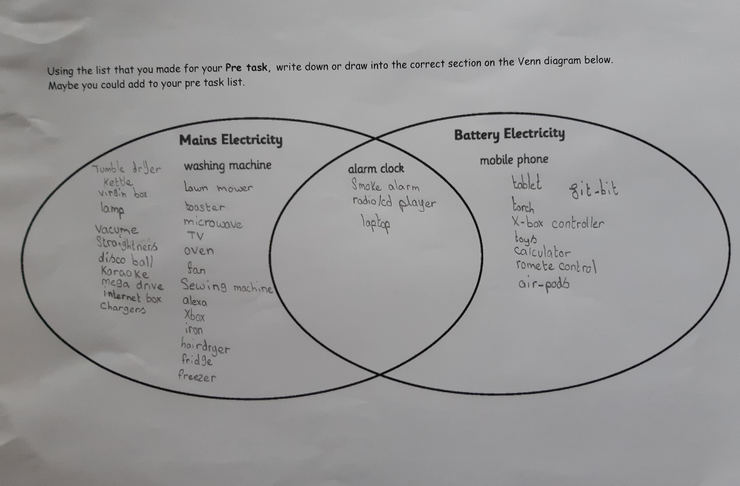 Using the list that you made for your Pre task, write down or draw into the correct section on the Venn diagram below.
Maybe you could add to your pre task list.
Mains Electricity
Tumble dryer
Kettle
virgin box
lamp
Vacume
Straightners
disco ball
Karaoke
mega drive
internet box
Chargers
washing machine
Lawn mower
toaster
microwave
TV
oven
fan
Sewing machine
alexa
Xbox
iron
hairdryer
fridge
freezer
alarm clock
Smoke alarm
radio/cd player
laptop
Battery Electricity
mobile phone
tablet
git-bit
torch
X-box controller
toys
calculator
romete control
air-pods